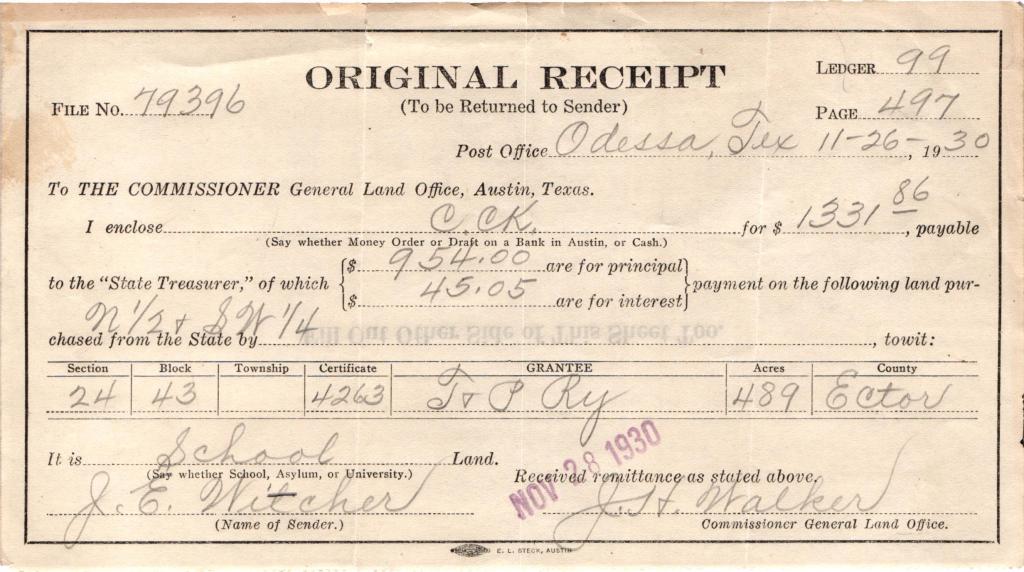 ORIGINAL RECEIPT
(To be Returned to Sender)
LEDGER 99
FILE No. 79396
PAGE 497
Post Office Odessa, Tex 11-26-, 1930
To THE COMMISSIONER General Land Office, Austin, Texas.
I enclose C. CK. for $ 1331 86, payable
(Say whether Money Order or Draft on a Bank in Austin, or Cash.)
to the "State Treasurer," of which { $ 954.00 are for principal } payment on the following land pur-
$ 45.05 are for interest
N 1/2 + SW 1/4
chased from the State by , towit:
Fill Out Other Side of This Sheet Too.
Section Block Township Certificate GRANTEE Acres County
24 43 4263 T & P Ry 489 Ector
It is School Land.
(Say whether School, Asylum, or University.)
Received remittance as stated above.
NOV 28 1930
J. E. Witcher J. H. Walker
(Name of Sender.) Commissioner General Land Office.
E. L. STECK, AUSTIN